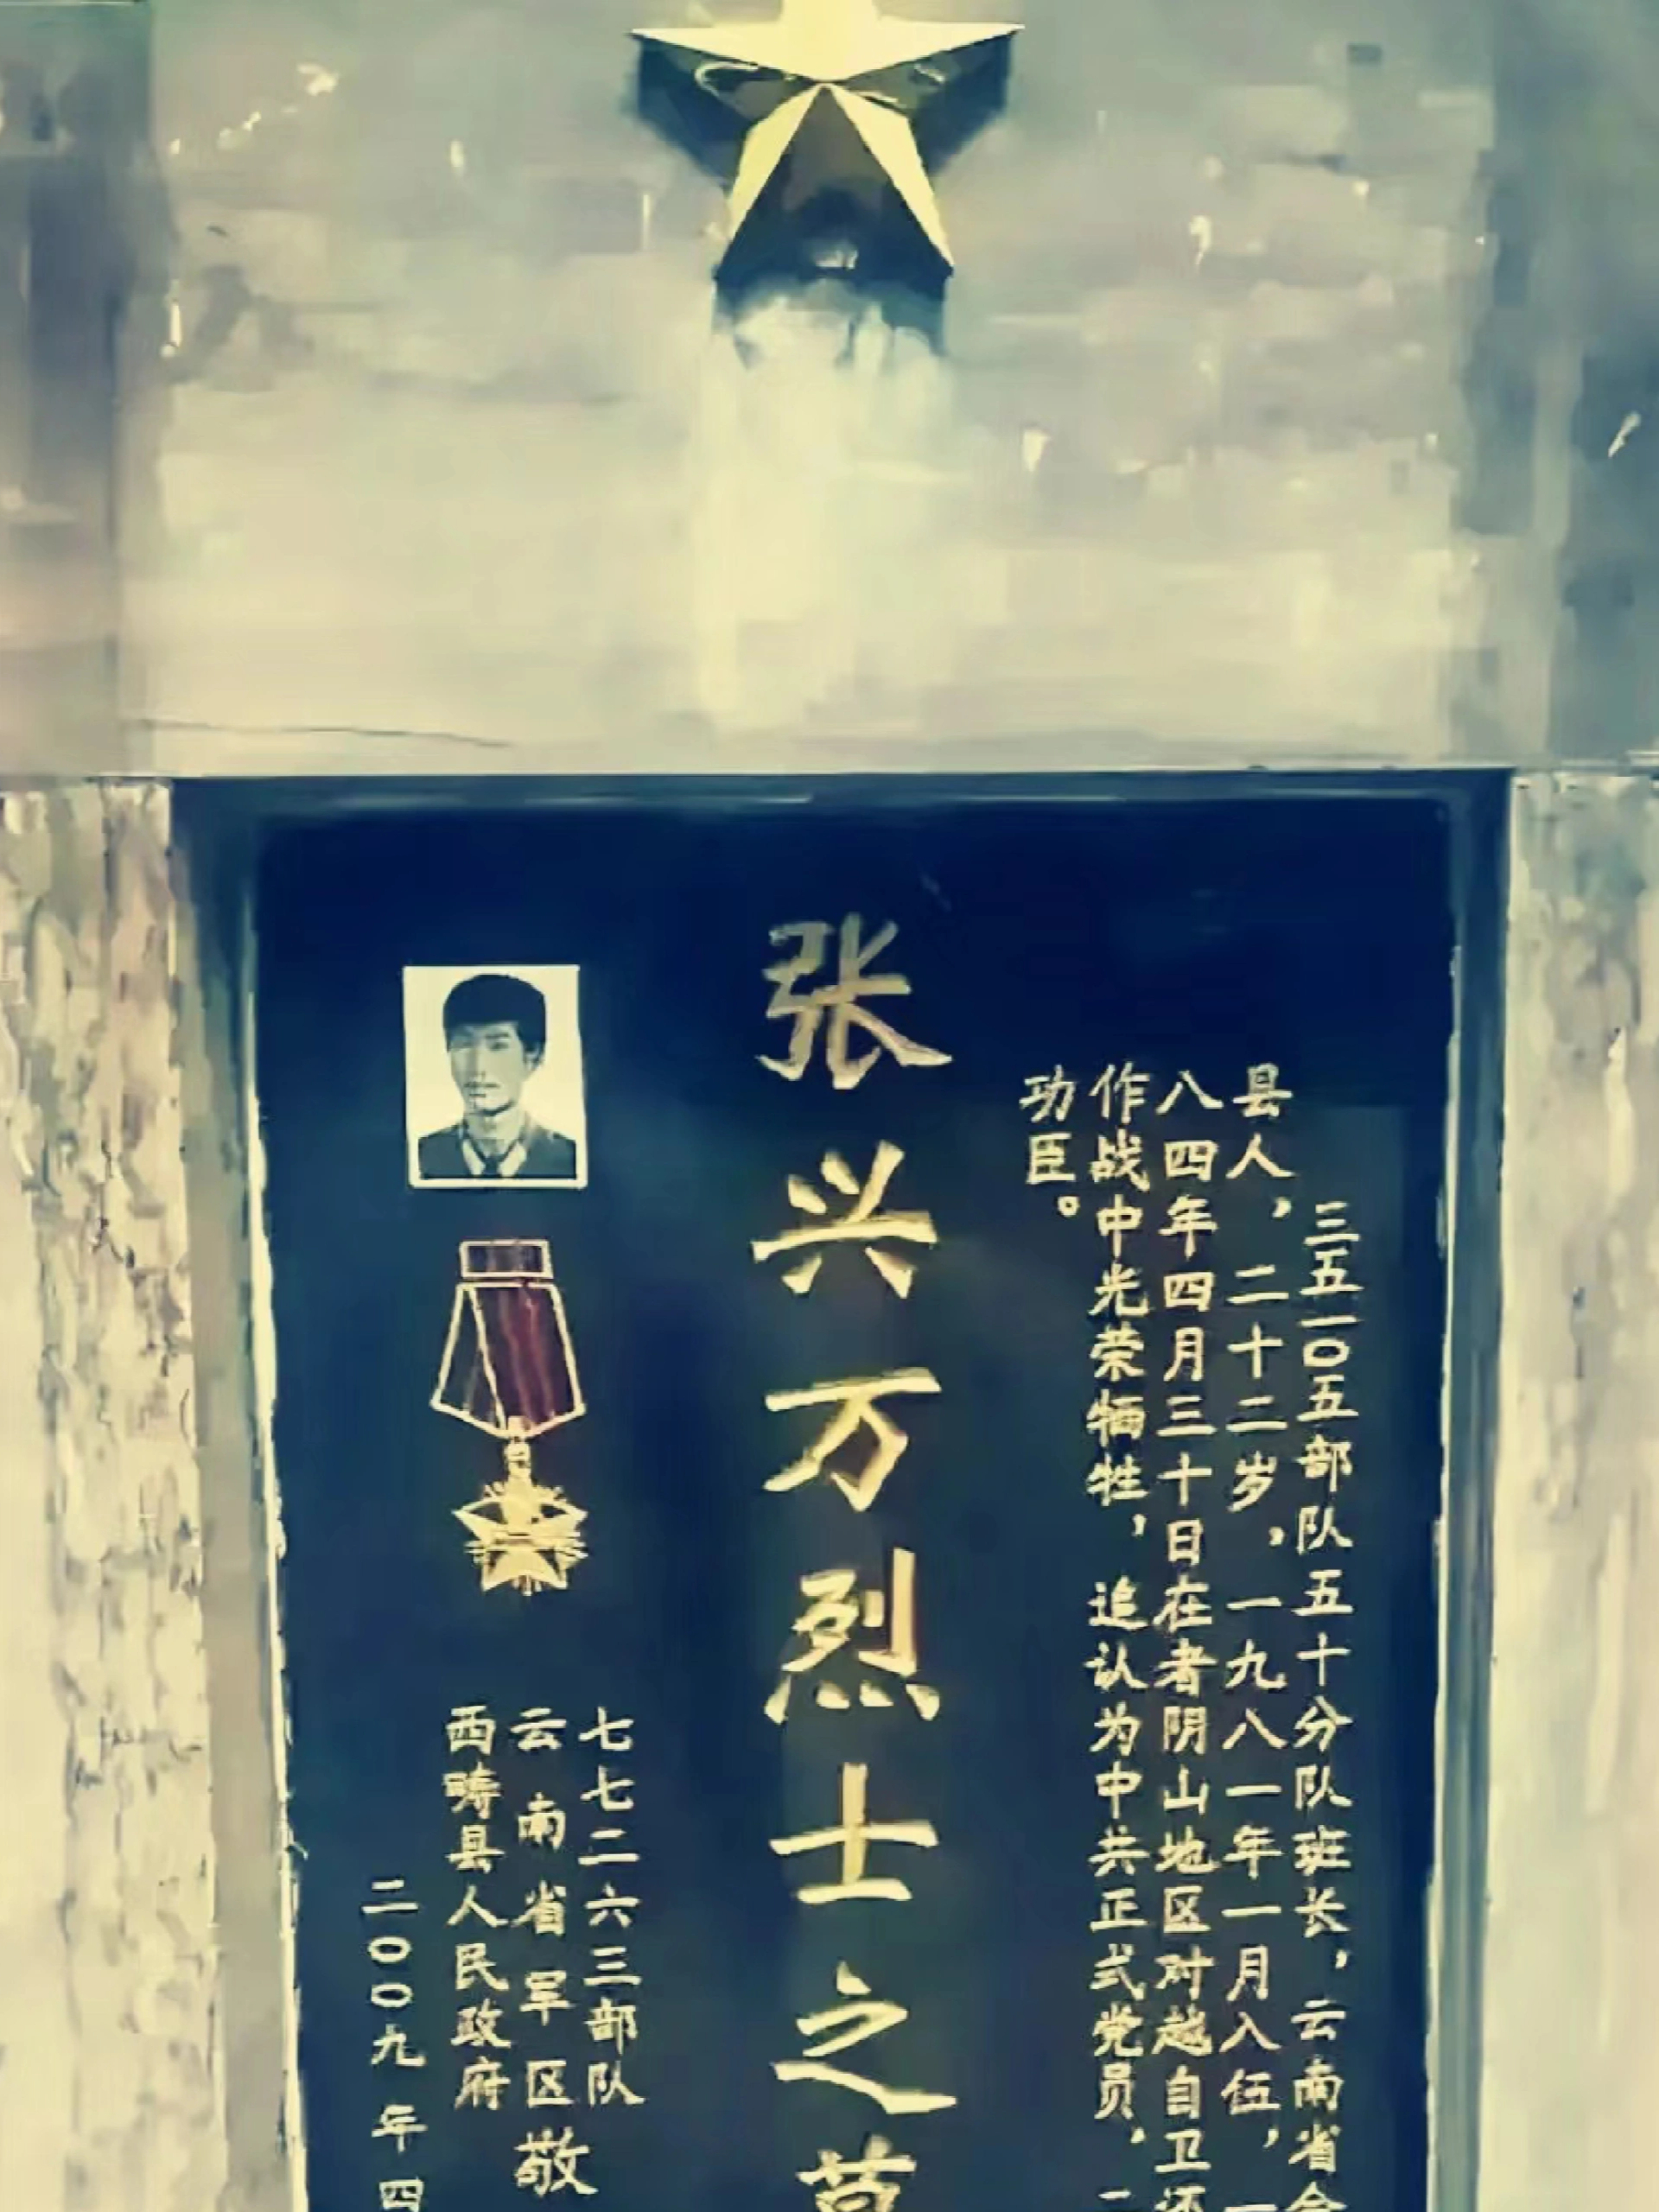 三五一0五部队五十分队班长，云南省会
县人，二十二岁，一九八一年一月入伍，一
八四年四月三十日在者阴山地区对越自卫还
作战中光荣牺牲，追认为中共正式党员，二
功臣。
张兴万烈士之墓
七七二六三部队
云南省军区敬
西畴县人民政府
二00九年四